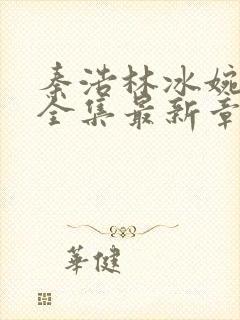 秦浩林冰婉
全集最新章
華健